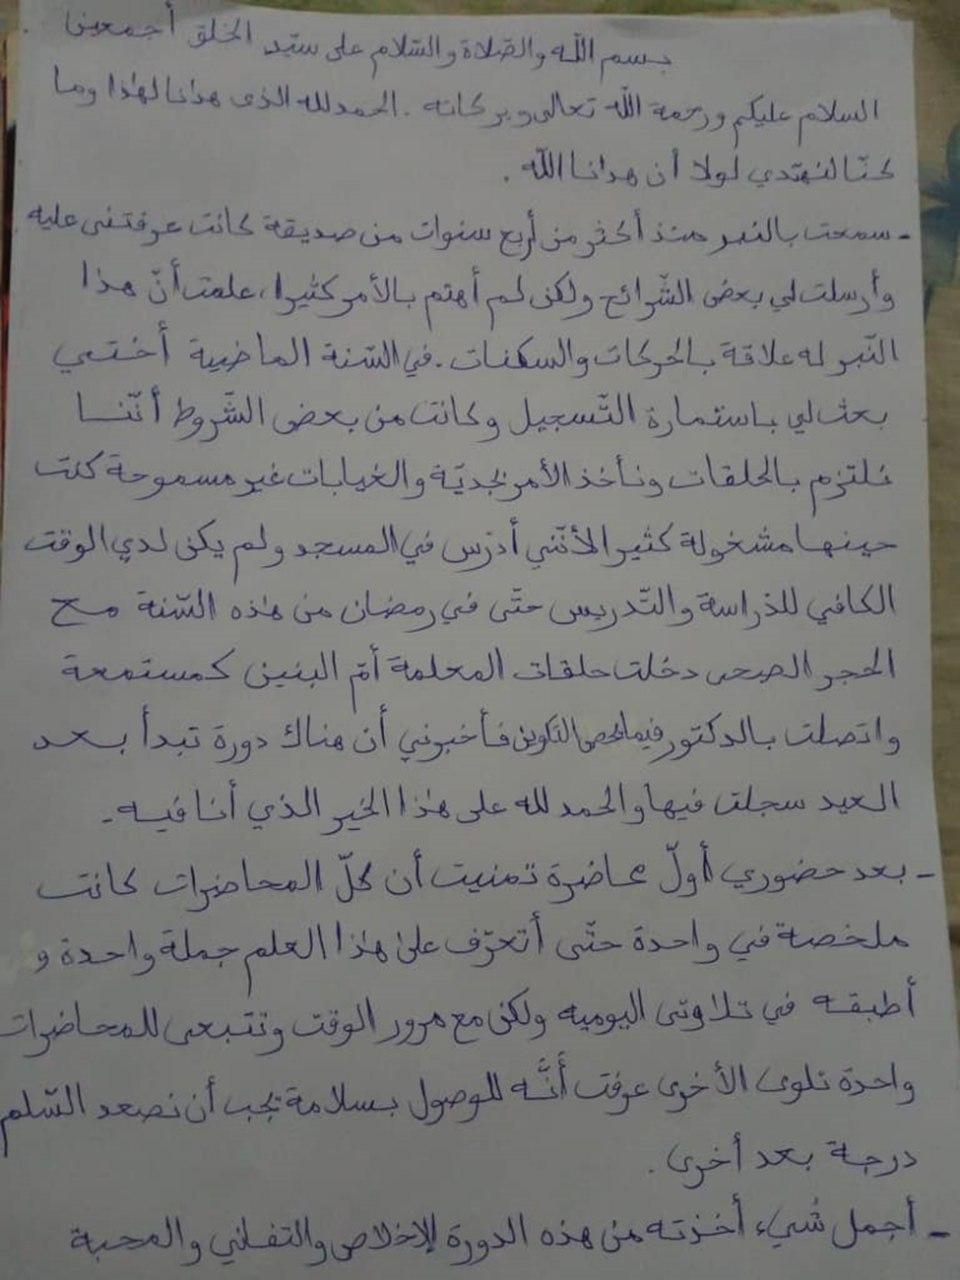 بسم الله والصّلاة والسّلام على سيّد الخلق أجمعين
السلام عليكم ورحمة الله تعالى وبركاته . الحمد لله الذي هدانا لهذا وما
كنّا لنهتدي لولا أن هدانا الله .
- سمعت بالنبر منذ أكثر من أربع سنوات من صديقة كانت عرفتني عليه
وأرسلت لي بعض الشّرائح ولكن لم أهتم بالأمر كثيرا، علمت أنّ هذا
النّبر له علاقة بالحركات والسكنات . في السّنة الماضية أختي
بعث لي باستمارة التّسجيل وكانت من بعض الشّروط أنّنا
نلتزم بالحلقات ونأخذ الأمر بجديّة والغيابات غير مسموحة كنت
حينها مشغولة كثيرا لأنّني أدرّس في المسجد ولم يكن لدي الوقت
الكافي للدراسة والتّدريس حتّى في رمضان من هذه السّنة مع
الحجر الصحي دخلت حلقات المعلمة أمّ البنين كمستمعة
واتصلت بالدكتور فيما يخص التكوين فأخبرني أن هناك دورة تبدأ بعد
العيد سجلت فيها والحمد لله على هذا الخير الذي أنا فيه .
- بعد حضوري أولّ محاضرة تمنيت أن كلّ المحاضرات كانت
ملخصة في واحدة حتّى أتعرّف على هذا العلم جملة واحدة و
أطبقه في تلاوتي اليومية ولكن مع مرور الوقت وتتبعي للمحاضرات
واحدة تلوى الأخرى عرفت أنَّه للوصول بسلامة يجب أن نصعد السّلم
درجة بعد أخرى .
- أجمل شيء أخذته من هذه الدورة الإخلاص والتفاني والمحبة